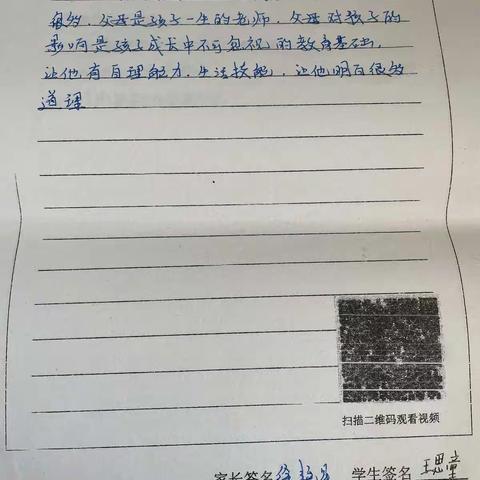 很多，父母是孩子一生的老师，父母对孩子的
影响是孩子成长中不可忽视的教育基础，
让他有自理能力，生活技能，让他明白很多
道理
扫描二维码观看视频
家长签名 学生签名